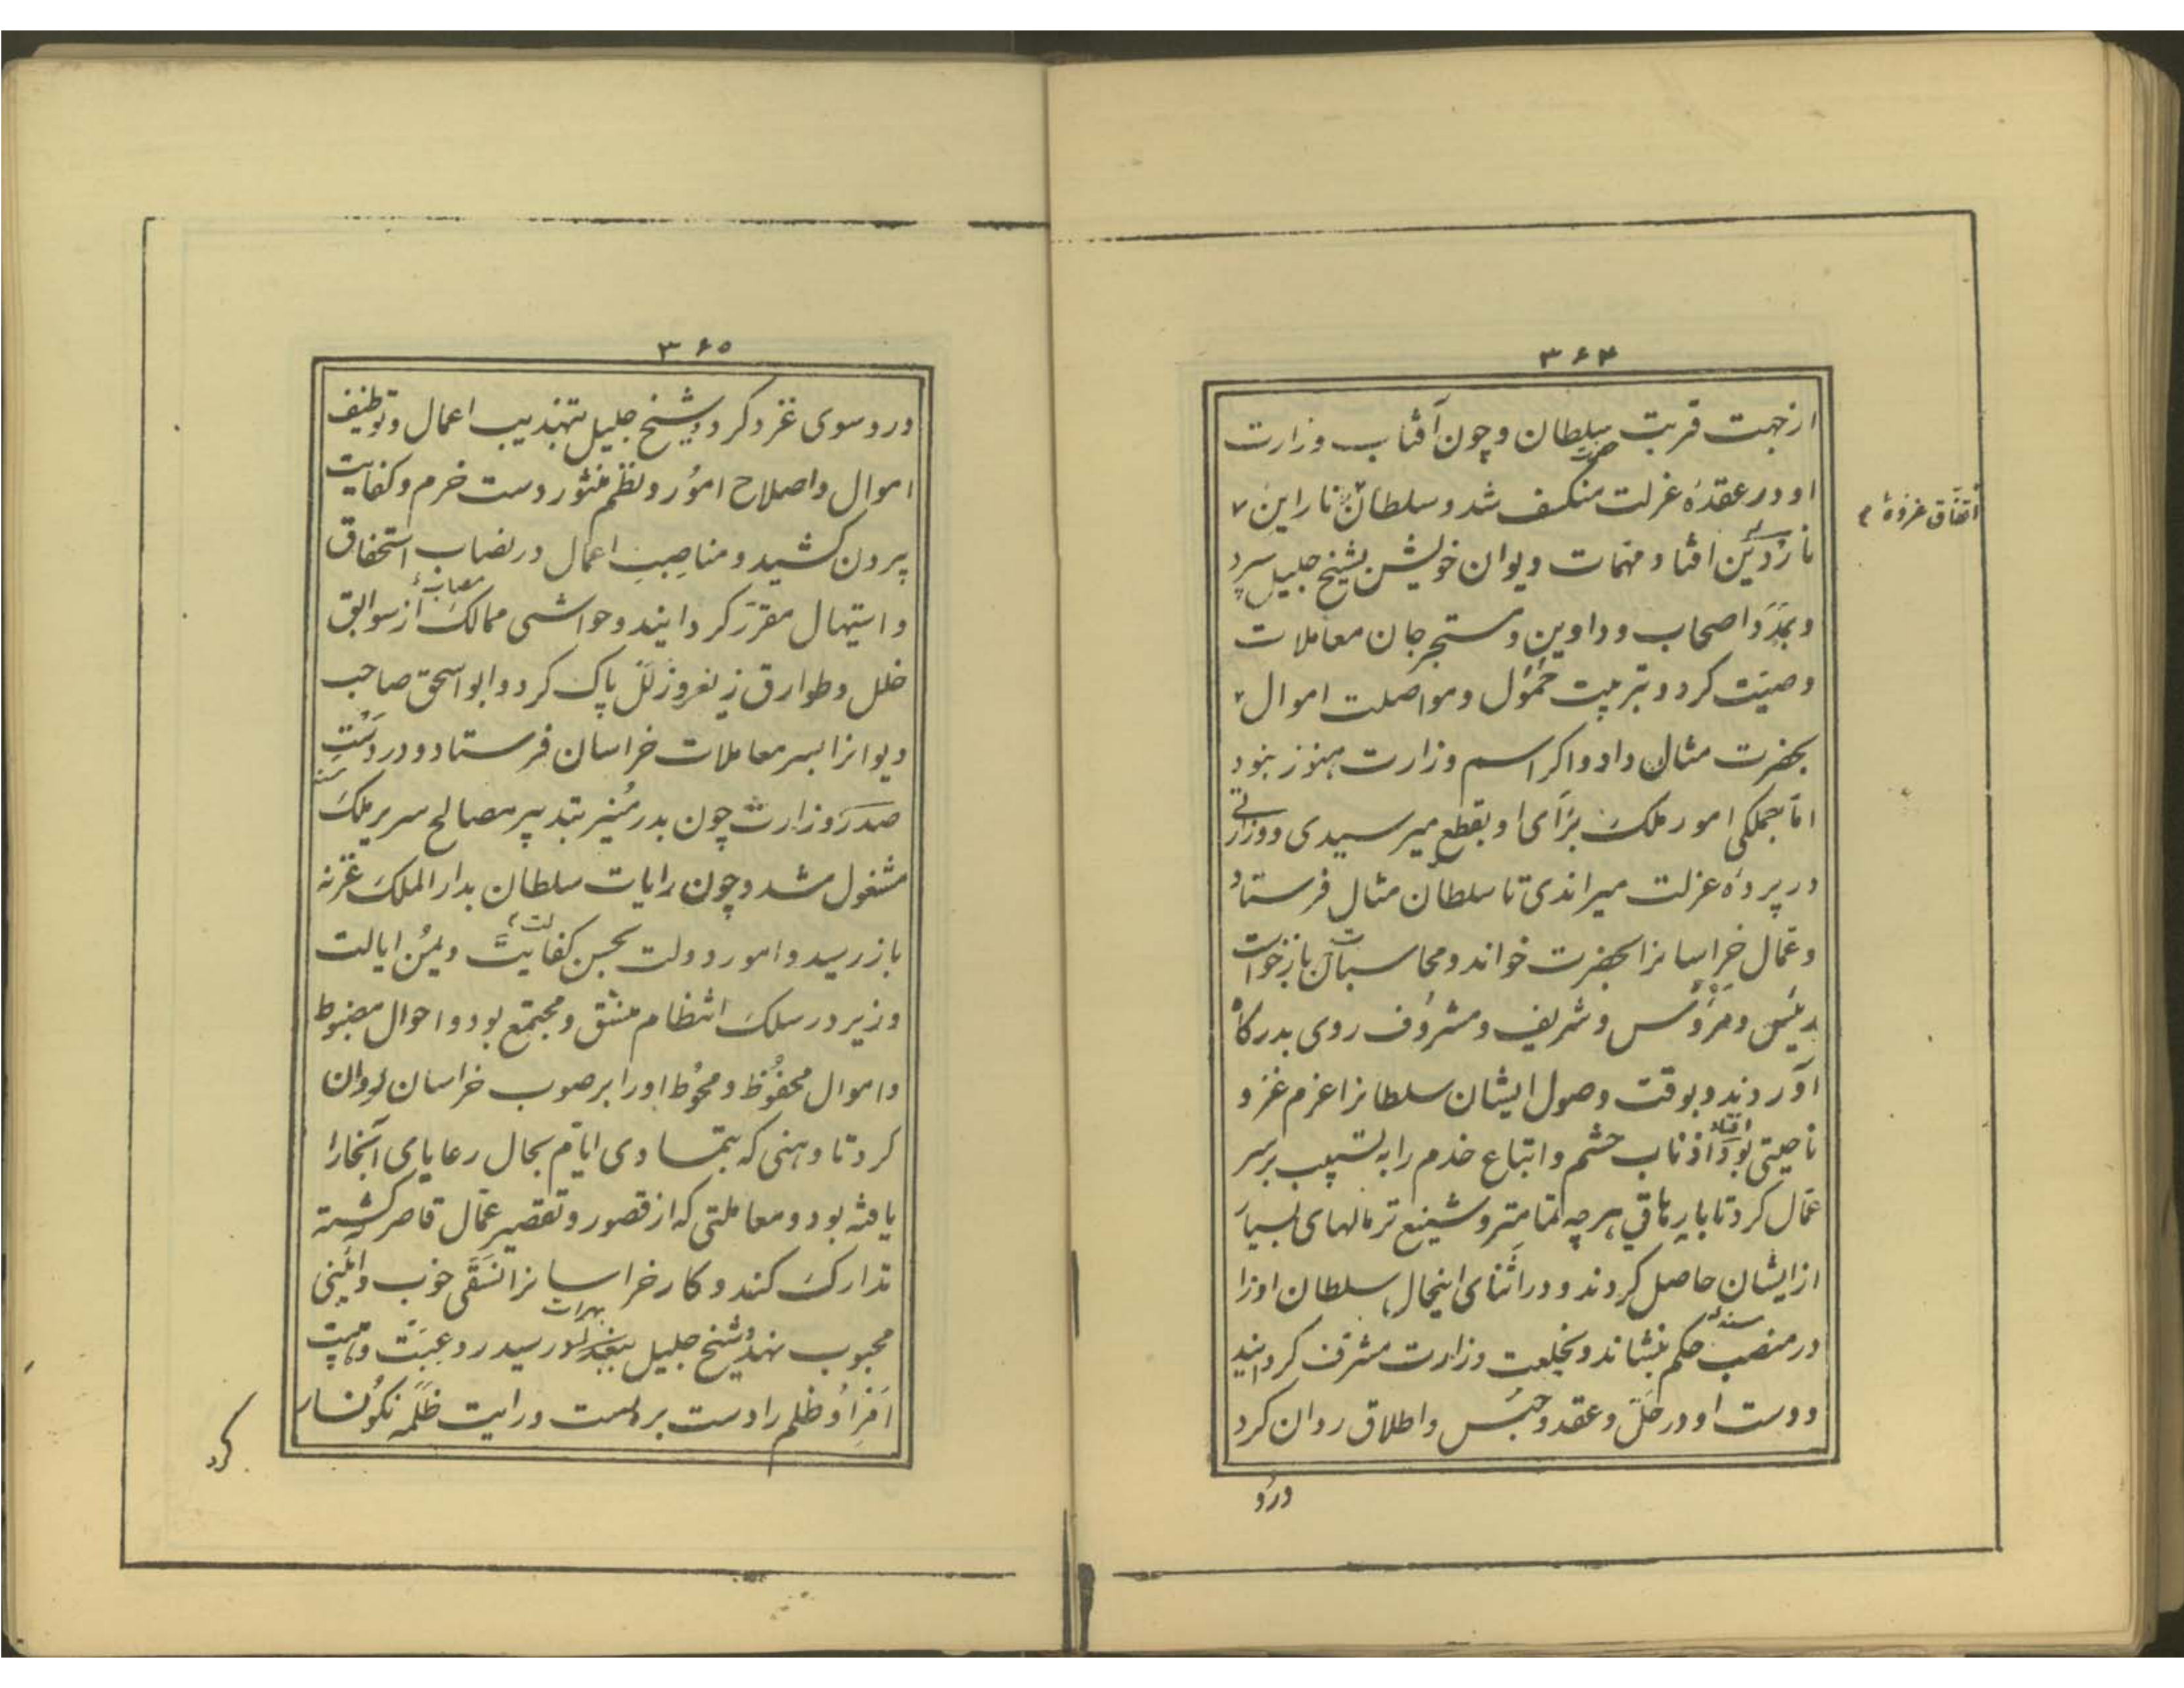 ۳۶۴
از جهت قربت سلطان و چون آفتاب وزارت
حضرت
او در عقدهٔ عزلت منکسف شد و سلطان نا راین
اتفاق غزوهٔ م
نازدین افتاد مهمات دیوان خویش بشیخ جلیل سپرد
و بمدد اصحاب دواوین و مستخرجان معاملات
وصیّت کرد و بتربیت حمول و مواصلت اموال
بحضرت مثال داد و اکر اسم وزارت هنوز نبود
امّا جملکی امور ملک برای او بقطع میرسیدی و وزارتی
در پردهٔ عزلت میراندی تا سلطان مثال فرستاد
و عمّال خراسانرا بحضرت خواند و محاسبات آن بازخواست
رئیس و مرؤس و شریف و مشروف روی بدرکاه
آوردند و بوقت وصول ایشان سلطانرا عزم غزو
افتاد
ناحیتی بود اذناب حشم و اتباع خدم را به تسبیب بر سر
عمّال کرد تا بارهاقی هر چه تمامتر و شنیع تر مالهای بسیار
از ایشان حاصل کردند و در اثنای اینحال سلطان او را
مسند
در منصب حکم بنشاند و بخلعت وزارت مشرف کردانید
و دست او در حلّ و عقد و حبس و اطلاق روان کرد
در و
۳۶۵
در و سوی غزو کرد و شیخ جلیل بتهذیب اعمال و توظیف
اموال و اصلاح امور و نظم منثور دست خرم و کفایت
بیرون کشید و مناصب اعمال در نصاب استحقاق
و استیهال مقرّر کردانیند و حواشی ممالک از سوابق
خلل و طوارق زیغ و زلل پاک کرد و ابو اسحق صاحب
دیوانرا بسر معاملات خراسان فرستاد و در دست
مسند
صدر وزارت چون بدر منیر بتدبیر مصالح سریر ملک
مشغول شد و چون رایات سلطان بدار الملک غزنه
باز رسید و امور دولت بحسن کفایت و یمن ایالت
وزیر در سلک انتظام منسّق و مجتمع بود و احوال مضبوط
و اموال محفوظ و محوط او را بر صوب خراسان روان
کرد تا وهنی که بتمادی ایّام بحال رعایای آنجا را
یافته بود و معاملتی که از قصور و تقصیر عمّال قاصر کشته
تدارک کند و کار خراسانرا نسقی خوب و آئینی
بهرات
محبوب نهد و شیخ جلیل رسید رد و هیبت
افزا و ظلم را دست بربست و رایت ظلمه نکونسار
کرد